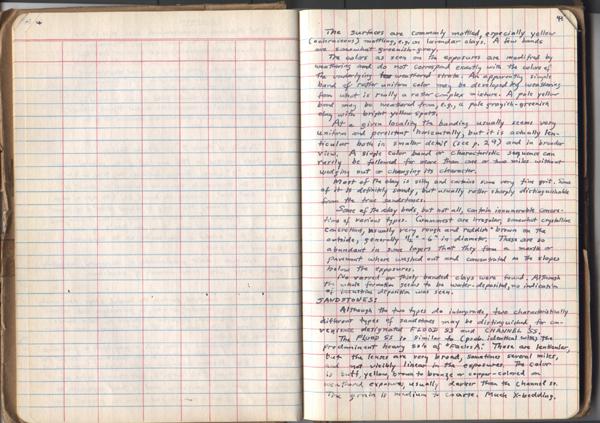 43
The surfaces are commonly mottled, especially yellow
(ochraceous) mottling, e.g. on lavender clays. A few bands
are somewhat greenish-gray.
The colors as seen on the exposures are modified by
weathering and do not correspond exactly with the colors of
the underlying weathered strata. An apparently simple
band of rather uniform color may be developed by weathering
from what is really a rather complex mixture. A pale yellow
band may be weathered from, e.g., a pale grayish-greenish
clay with bright yellow spots.
At a given locality the banding usually seems very
uniform and persistent horizontally, but it is actually len-
ticular both in smaller detail (see p. 29) and in broader
view. A single color band or characteristic sequence can
rarely be followed for more than one or two miles without
wedging out or changing its character.
Most of the clay is silty and contains some very fine grit. Some
of it is definitely sandy, but usually rather sharply distinguishable
from the true sandstones.
Some of the clay beds, but not all, contain innumerable concre-
tions of various types. Commonest are irregular, somewhat crystalline
concretions, usually very rough and reddish brown on the
outside, generally 1/2" - 6" in diameter. These are so
abundant in some layers that they form a mantle or
pavement where washed out and concentrated on the slopes
below the exposures.
No varved or thinly banded clays were found. Although
the whole formation seems to be water-deposited, no indication
of lacustrine deposition was seen.
SANDSTONES:
Although the two types do intergrade, two characteristically
different types of sandstones may be distinguished, for con-
venience designated FLOOD SS and CHANNEL SS.
The FLOOD SS is similar to (prob. identical with) the
predominant heavy sds of "Facies A." These are lenticular,
but the lenses are very broad, sometimes several miles,
and not visibly linear in the exposures. The color
is buff, yellow, brown to bronze or copper-colored on
weathered exposures, usually darker than the channel ss.
The grain is medium to coarse. Much X-bedding.